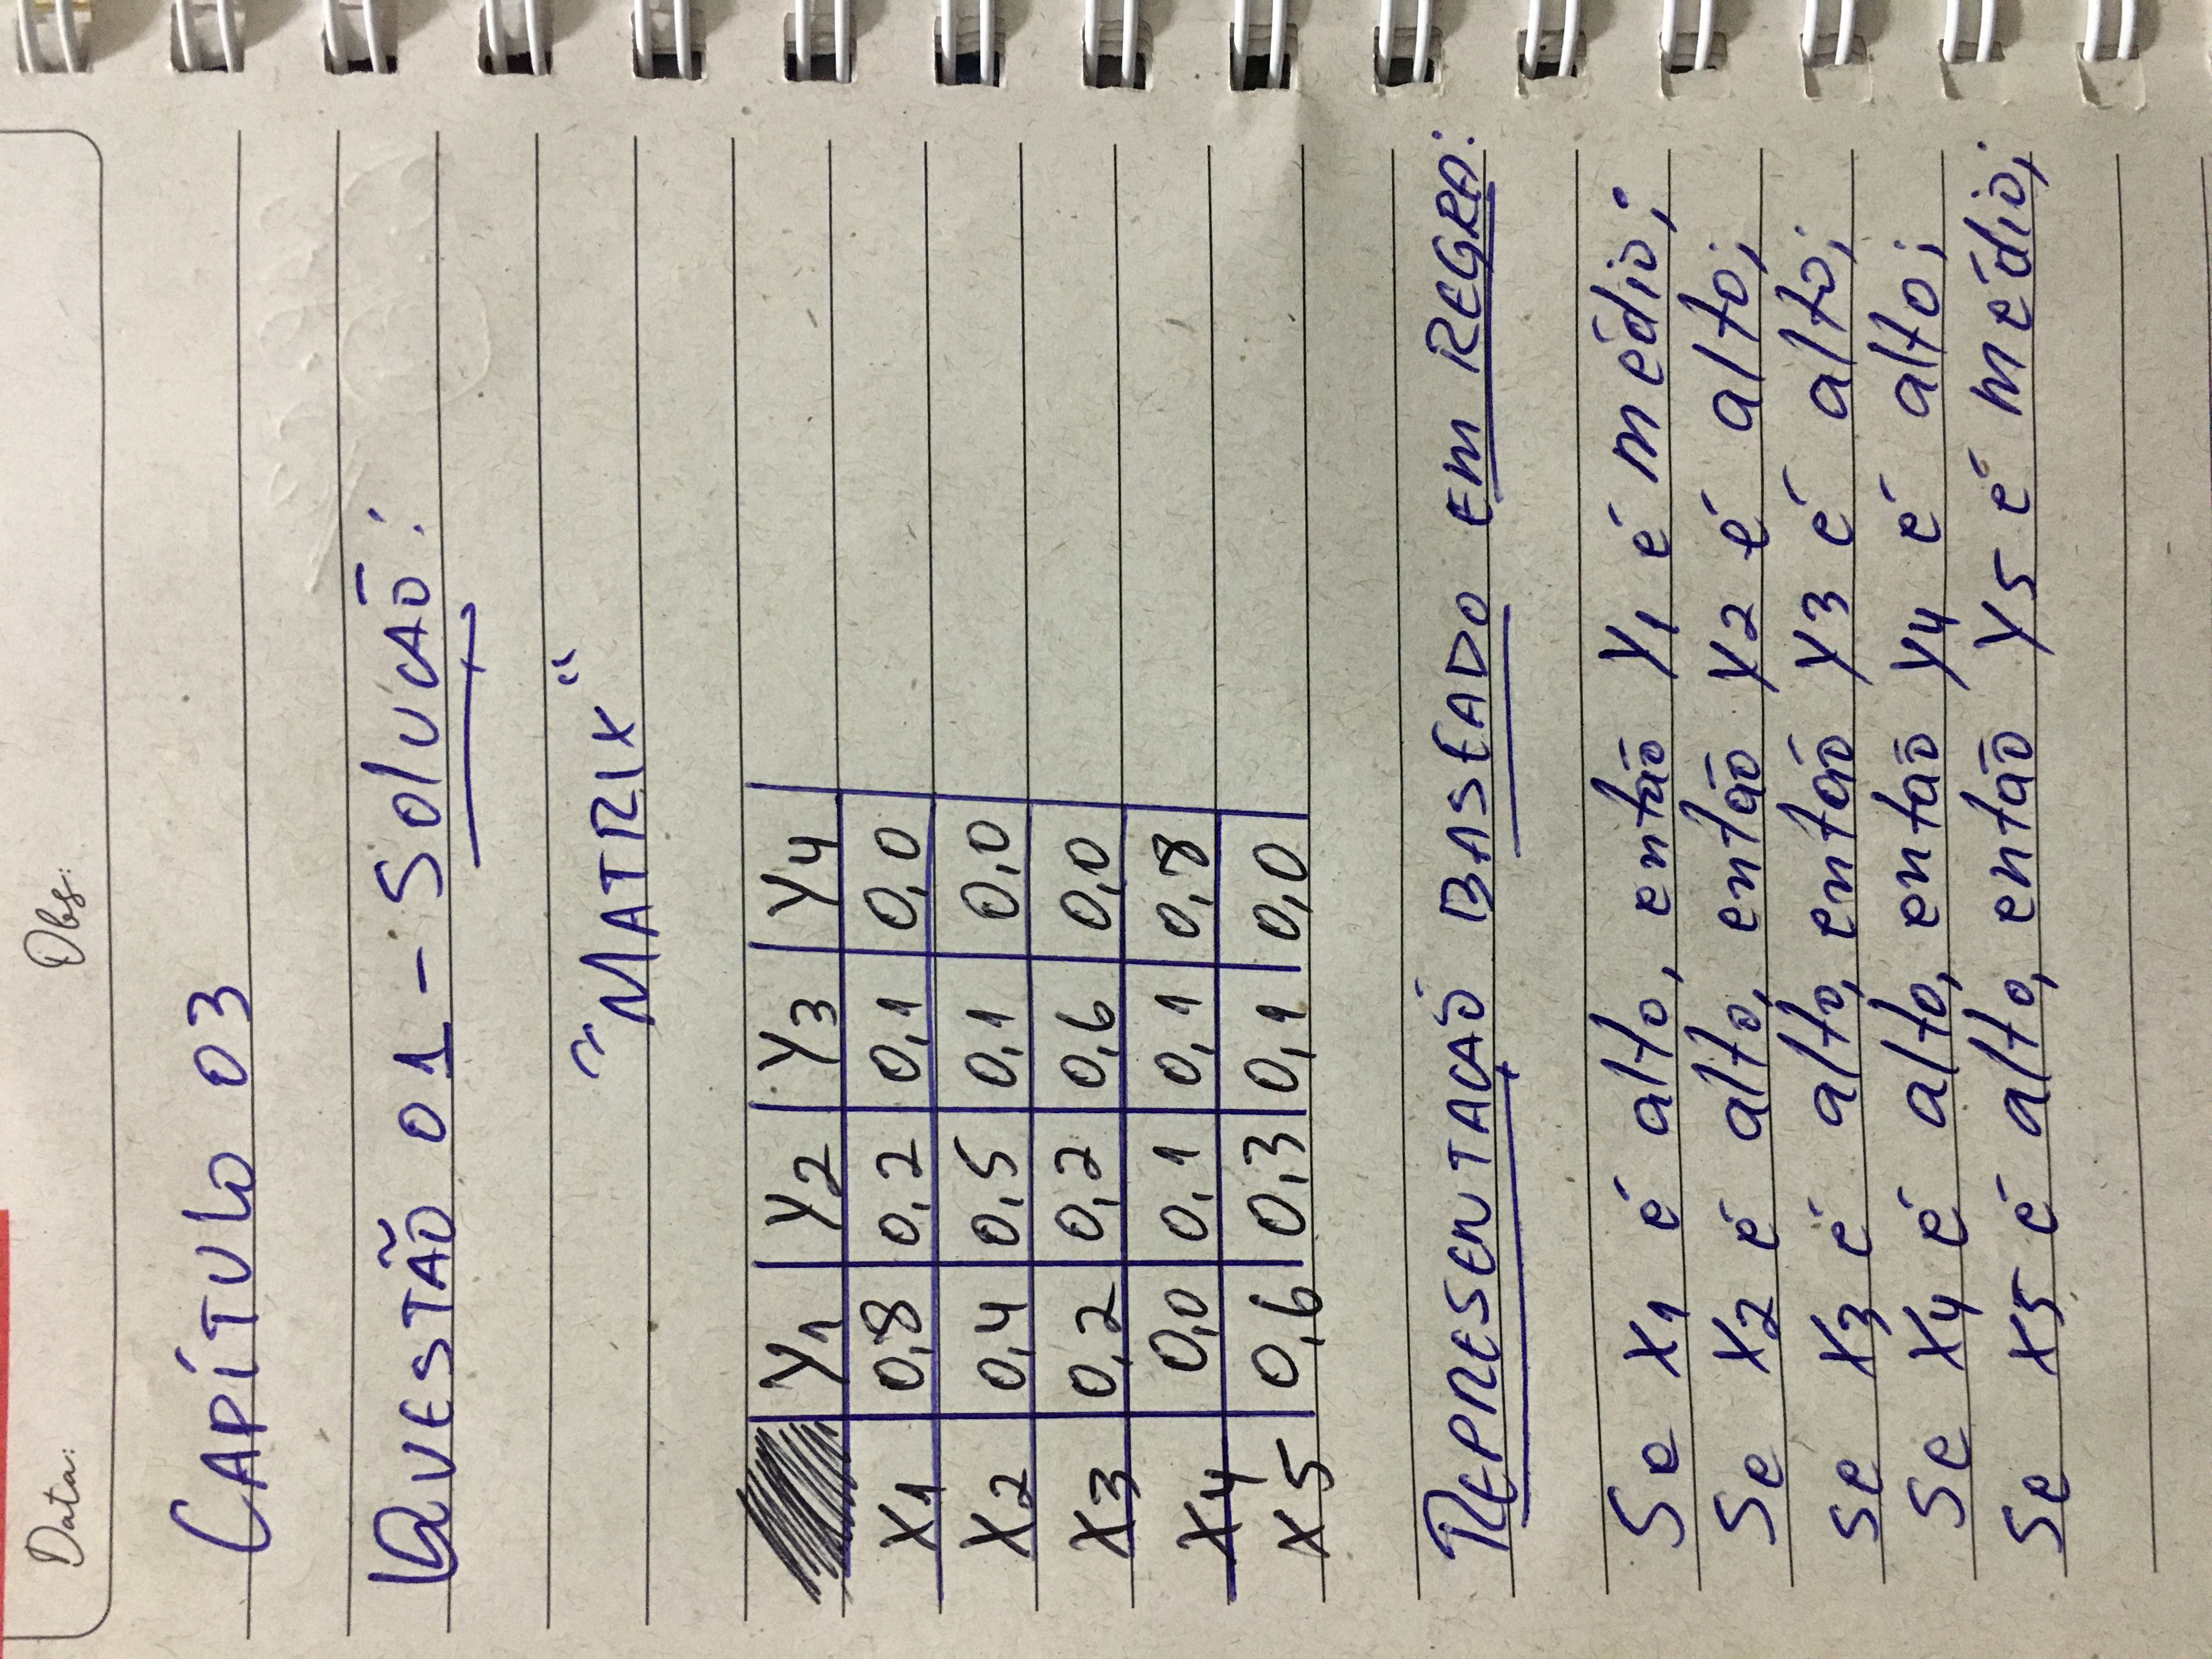 Data: Obs:
CAPÍTULO 03
QUESTÃO 01 - SOLUÇÃO:
"MATRIX"
Y1 Y2 Y3 Y4
X1 0,8 0,2 0,1 0,0
X2 0,4 0,5 0,1 0,0
X3 0,2 0,2 0,6 0,0
X4 0,0 0,1 0,1 0,8
X5 0,6 0,3 0,1 0,0
REPRESENTAÇÃO BASEADO EM REGRA:
Se X1 é alto, então Y1 é médio;
Se X2 é alto, então Y2 é alto;
se X3 é alto, então Y3 é alto;
Se X4 é alto, então Y4 é alto;
Se X5 é alto, então Y5 é médio;